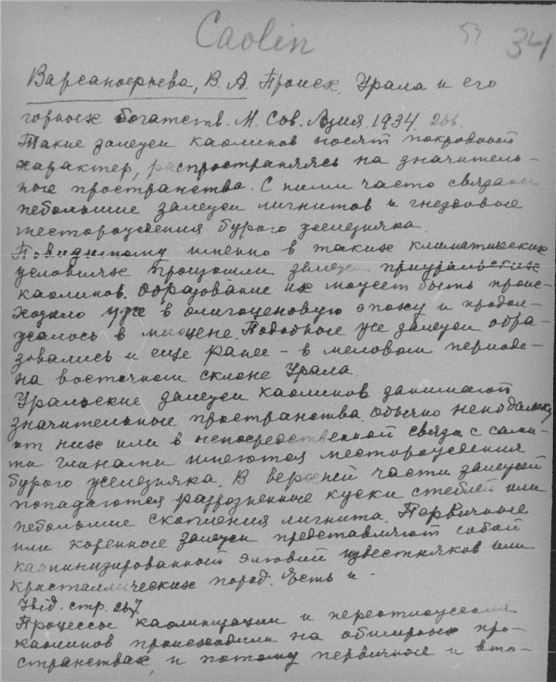 Caolin
57 341
Варсанофьева, В. А. Происх. Урала и его
горных богатств. М. Сов. Азия. 1934. 266
Такие залежи каолинов носят покровный
характер, распространяясь на значитель-
ные пространства. С ними часто связаны
небольшие залежи лигнитов и гнездовые
месторождения бурого железняка.
По-видимому именно в таких климатических
условиях произошли залежи приуральских
каолинов. Образование их может быть проис-
ходило уже в олигоценовую эпоху и продол-
жалось в миоцене. Подобные же залежи обра-
зовались и еще ранее - в меловом периоде -
на восточном склоне Урала
Уральские залежи каолинов занимают
значительные пространства. Обычно неподалеку
от них или в непосредственной связи с сами-
ми глинами имеются месторождения
бурого железняка. В верхней части залежей
попадаются разрозненные куски стеблей или
небольшие скопления лигнита. Первичные
или коренные залежи представляют собой
каолинизированный элювий известняков или
кристаллических пород. Есть и -
Ibid. стр. 267
Процессы каолинизации и переотложения
каолинов происходили на обширных про-
странствах, и потому первичные и вто-